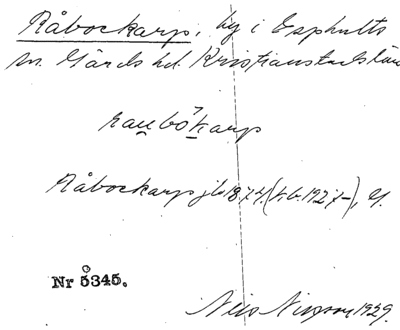 Råbockarp, by i Esphults
sn. Gärds hd. Kristianstads län
raubökarp
Råbockarp jb 1874 (k.b. 1927-), 
Nr 5345.
Nils Nilsson 1929.